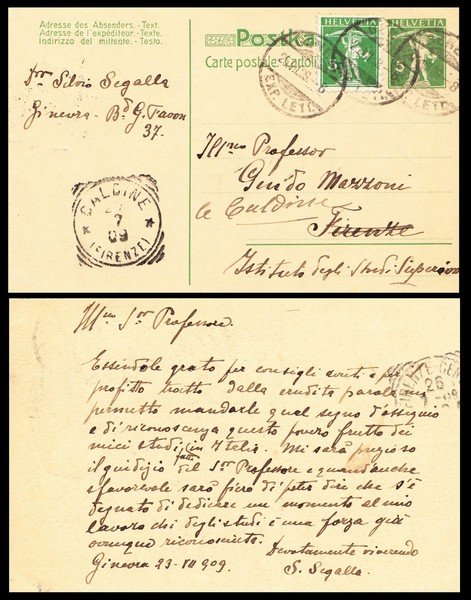 Adresse des Absenders.-Text.
Adresse de l'expéditeur.-Texte.
Indirizzo del mittente.-Testo.
Postka
Carte postale. Cartoli
HELVETIA
5
HELVETIA
5
EXP. LETT.
EXP. LETT.
Dre Silvio Segalla
Ginevra - Bd G. Favon
37.
Illmo Professor
Guido Mazzoni
le Caldine
Firenze
Istituto degli Studi Superiori
CALDINE
7
09
(FIRENZE)
Illmo Sor Professore.
Essendole grato per consigli avuti e pel
profitto tratto dalla erudita parola mi
permetto mandarle qual segno d'ossequio
e di riconoscenza questo povero frutto dei
miei studi fatti in Italia. Mi sarà prezioso
il giudizio del Sor Professore e quand'anche
sfavorevole sarò fiero di poter dire che s'è
degnato di dedicare un momento al mio
lavoro chi degli studi è una forza già
ovunque riconosciuta.
Devotamente riverendo
Ginevra 23-VII 909.
S. Segalla.
26